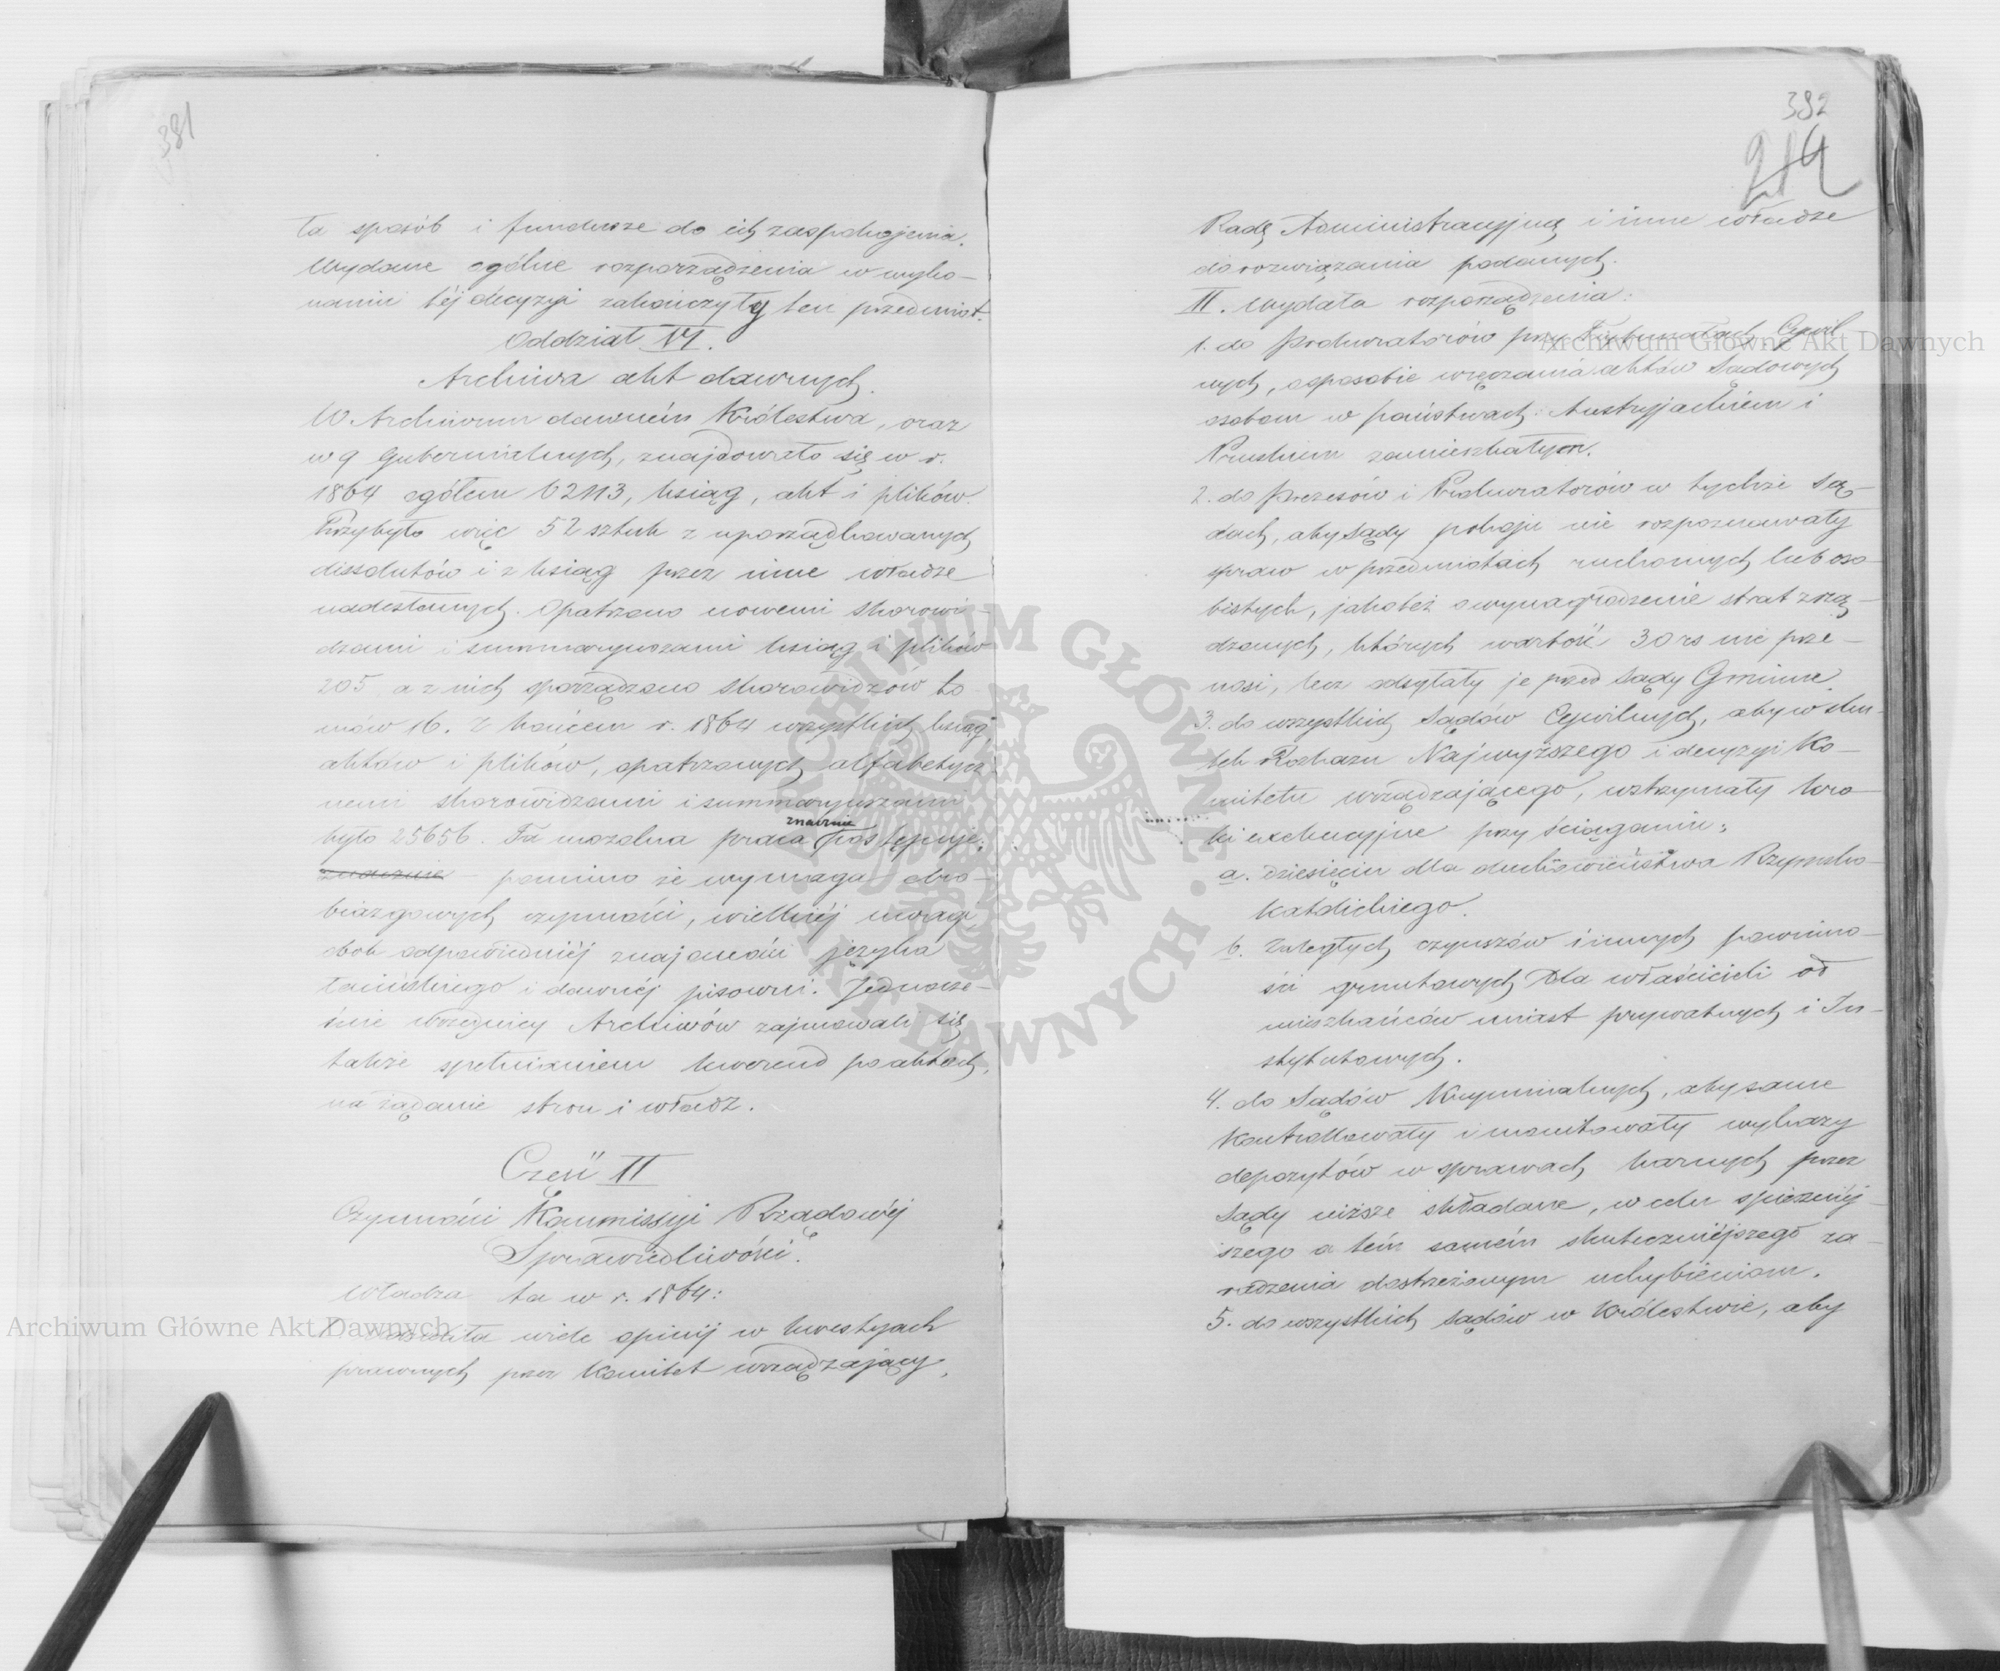 381
ta sposób i fundusze do ich zaspokojenia.
Wydane ogólne rozporządzenia w wyko-
naniu téj decyzyi zakończyły ten przedmiot.
Oddział VI.
Archiwa akt dawnych.
W Archiwum dawném Królestwa, oraz
w 9 Gubernialnych, znajdowało się w r.
1864 ogółem 62113, ksiąg, akt i plików.
Przybyło więc 52 sztuk z uporządkowanych
dissolutów i z ksiąg przez inne władze
nadesłanych. Opatrzono nowemi skorowi-
dzami i summaryuszami ksiąg i plików
205 a z nich sporządzono skorowidzow to-
mów 16. Z końcem r. 1864 wszystkich ksiąg,
aktów i plików, opatrzonych alfabetycz-
nemi skorowidzami i summaryuszami
było 25656. Ta mozolna praca znacznie postępuje,
znacznie pomimo że wymaga dro-
biazgowych czynności, wielkiéj uwagi
obok odpowiedniéj znajomości języka
łacińskiego i dawnéj pisowni. Jednocze-
śnie Urzędnicy Archiwów zajmowali się
także spełnianiem kwerend po aktach,
na żądanie stron i władz.
Część II
Czynności Kommissyi Rządowéj
Sprawiedliwości.
Władza ta w r. 1864:
I. udzieliła wiele opinij w kwestyach
prawnych przez Komitet urządzający,
382
214
Radę Administracyjną i inne władze
do rozwiązania podanych.
II. wydała rozporządzenia:
1. do Prokuratorów przy Trybunałach Cywil
nych, o sposobie wręczania aktów Sądowych
osobom w państwach: Austryjackiem i
Pruskiem zamieszkałym.
2. do Prezesów i Prokuratorów w tychże Są-
dach, aby sądy pokoju nie rozpoznawały
spraw w przedmiotach ruchomych lub oso-
bistych, jakoteż o wynagrodzenie strat zrzą-
dzonych, których wartość 30 rs nie prze-
nosi, lecz odsyłały je przed sądy Gminne.
3. do wszystkich Sądów Cywilnych, aby w sku-
tek Rozkazu Najwyższego i decyzyi Ko-
mitetu urządzającego, wstrzymały kro-
ki exekucyjne przy ściąganiu:
a. dziesięcin dla duchowieństwa Rzymsko-
katolickiego.
b. Zaległych czynszów i innych powinno-
ści gruntowych dla właścicieli od
mieszkańców miast prywatnych i In-
stytutowych.
4. do Sądów Kryminalnych, aby same
kontrollowały i monitowały wykazy
depozytów w sprawach karnych przez
Sądy niższe składane, w celu spieszniéj-
szego a tém samém skuteczniéjszego za-
radzenia dostrzeżonym uchybieniom.
5. do wszystkich sądów w Królestwie, aby
Archiwum Główne Akt Dawnych
Archiwum Główne Akt Dawnych
ARCHIWUM GŁÓWNE AKT DAWNYCH